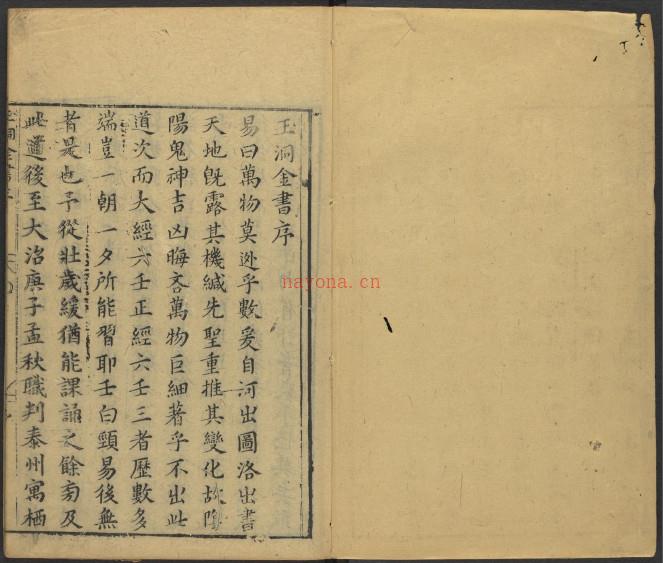 玉洞金書序
易曰萬物莫逃乎數爰自河出圖洛出書
天地旣露其機緘先聖重推其變化故陰
陽鬼神吉凶晦吝萬物巨細著乎不出此
道次而大經六壬正經六壬三者歷數多
端豈一朝一夕所能習耶壬白頸易後無
者是也予從壯歲緩猶能課誦之餘旁及
此道後至大治庚子孟秋職判泰州寓栖
nayona.cn